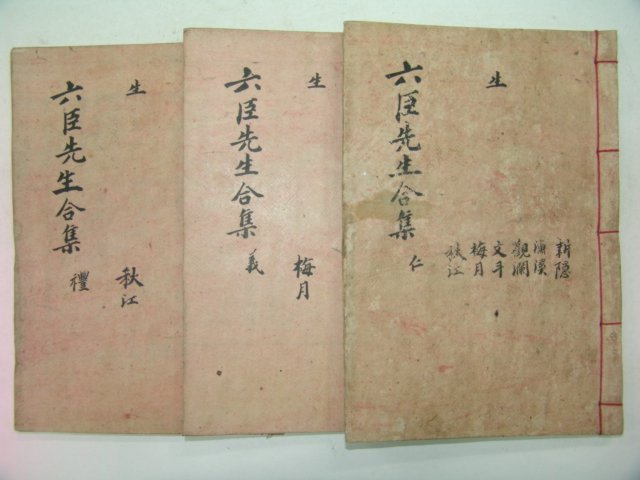 耕隠
漁溪
觀瀾
文斗
梅月
秋江
生
六臣先生合集
仁
生
梅月
六臣先生合集
義
生
秋江
六臣先生合集
禮